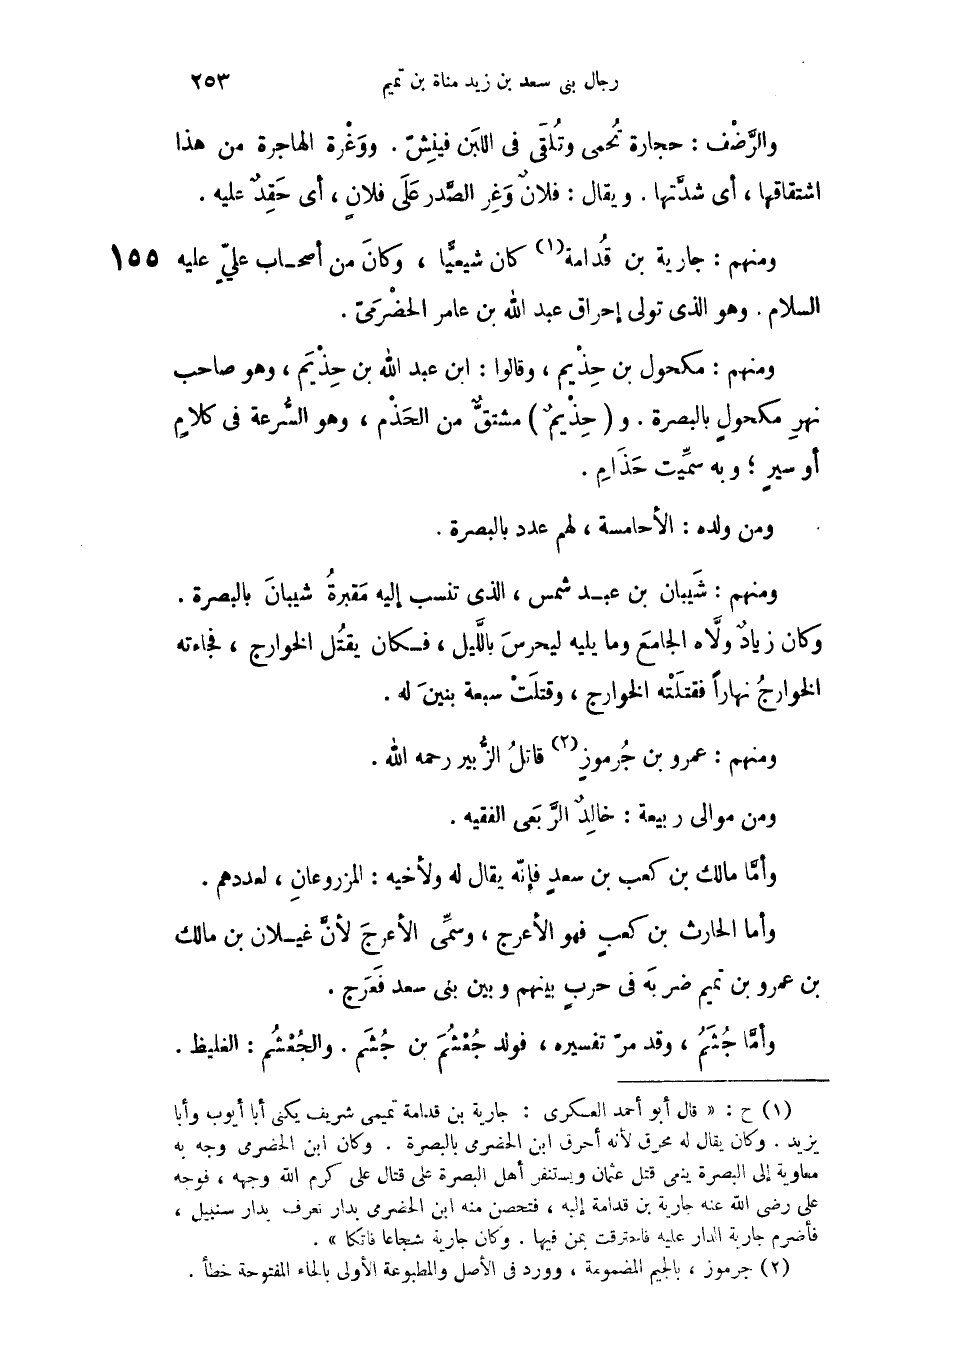 رجال بنى سعد بن زيد مناة بن تميم ٢٥٣
والرَّضْف : حجارة تُحمى وتُلقَى فى اللبَن فينِشّ . ووَغْرة الهاجرة من هذا
اشتقاقها ، أى شدَّتها . ويقال : فلانٌ وَغِر الصَّدر عَلَى فلانٍ ، أى حَقِدٌ عليه .
ومنهم : جارية بن قُدامة(١) كان شيعيًّا ، وكانَ من أصحاب علىٍّ عليه ١٥٥
السلام . وهو الذى تولى إحراق عبد الله بن عامر الحضْرمَىّ .
ومنهم : مكحول بن حِذْيم ، وقالوا : ابن عبد الله بن حِذْيَم ، وهو صاحب
نهرِ مكحولٍ بالبصرة . و ( حِذْيمٌ ) مشتقٌّ من الحَذْم ، وهو السُّرعة فى كلامٍ
أو سيرٍ ؛ وبه سمِّيت حَذَامِ .
ومن ولده : الأحامسة ، لهم عدد بالبصرة .
ومنهم : شَيبان بن عبد شمس ، الذى تنسب إليه مَقبرةُ شيبانَ بالبصرة .
وكان زيادٌ ولَّاه الجامعَ وما يليه ليحرسَ باللَّيل ، فكان يقتُل الخوارج ، فجاءته
الخوارجُ نهاراً فقتلَتْه الخوارج ، وقتلَتْ سبعة بنينَ له .
ومنهم : عمرو بن جُرموزٍ(٢) قاتلُ الزُّبير رحمه الله .
ومن موالى ربيعة : خالدٌ الرَّبَعى الفقيه .
وأمَّا مالك بن كعب بن سعدٍ فإنّه يقال له ولأخيه : المزروعانِ ، لعددهم .
وأما الحارث بن كعبٍ فهو الأعرج ، وسمِّى الأعرجَ لأنَّ غيلان بن مالك
بن عمرو بن تميم ضربَه فى حربٍ بينهم وبين بنى سعد فَعَرَج .
وأمَّا جُشَمُ ، وقد مرّ تفسيره ، فولد جُعْشُمَ بن جُشَم . والجُعْشُم : الغليظ .
(١) ح : « قال أبو أحمد العسكرى : جارية بن قدامة تميمى شريف يكنى أبا أيوب وأبا
يزيد . وكان يقال له محرق لأنه أحرق ابن الحضرمى بالبصرة . وكان ابن الحضرمى وجه به
معاوية إلى البصرة ينعى قتل عثمان ويستنفر أهل البصرة على قتال على كرم الله وجهه ، فوجه
على رضى الله عنه جارية بن قدامة إليه ، فتحصن منه ابن الحضرمى بدار تعرف بدار سنبيل ،
فأضرم جارية الدار عليه فاحترقت بمن فيها . وكان جارية شجاعا فاتكا » .
(٢) جرموز ، بالجيم المضمومة ، وورد فى الأصل والمطبوعة الأولى بالحاء المفتوحة خطأ .